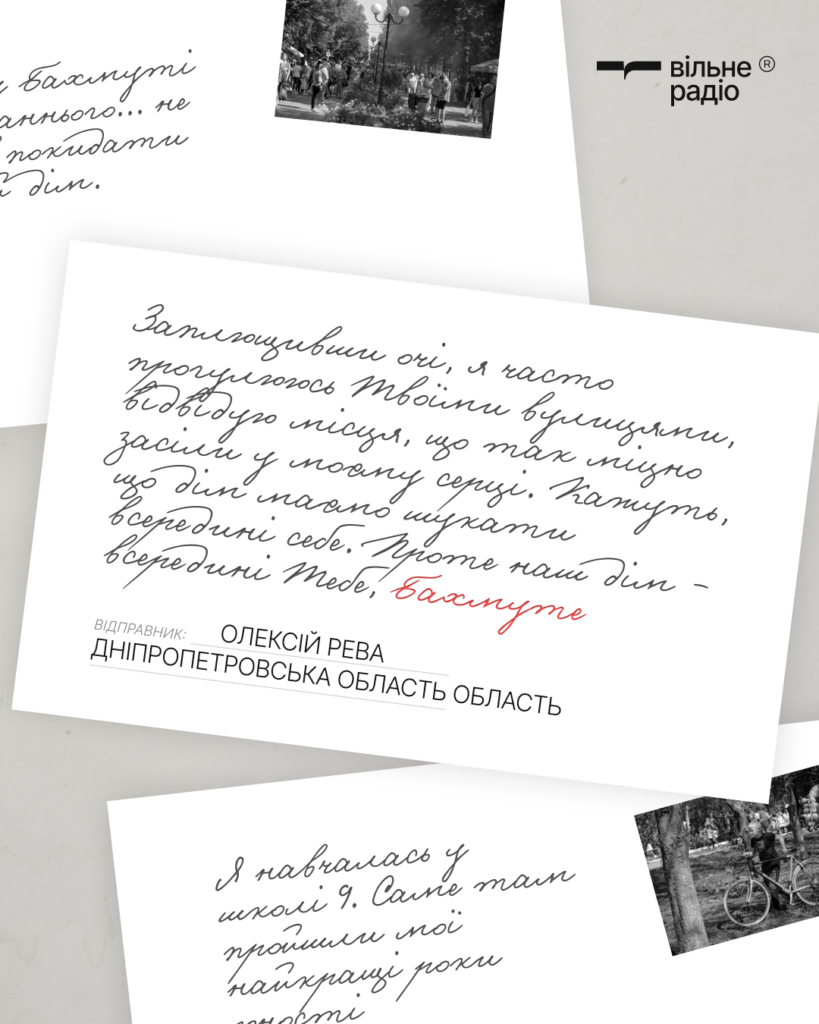 вільне ®
радіо
у Бахмуті
аннього... не
покидати
й дім.
Заплющивши очі, я часто
прогулююсь Твоїми вулицями,
відвідую місця, що так міцно
засіли у моєму серці. Кажуть,
що дім маємо шукати
всередині себе. Проте наш дім –
всередині Тебе, Бахмуте
ВІДПРАВНИК: ОЛЕКСІЙ РЕВА
ДНІПРОПЕТРОВСЬКА ОБЛАСТЬ ОБЛАСТЬ
Я навчалась у
школі 9. Саме там
пройшли мої
найкращі роки
юності